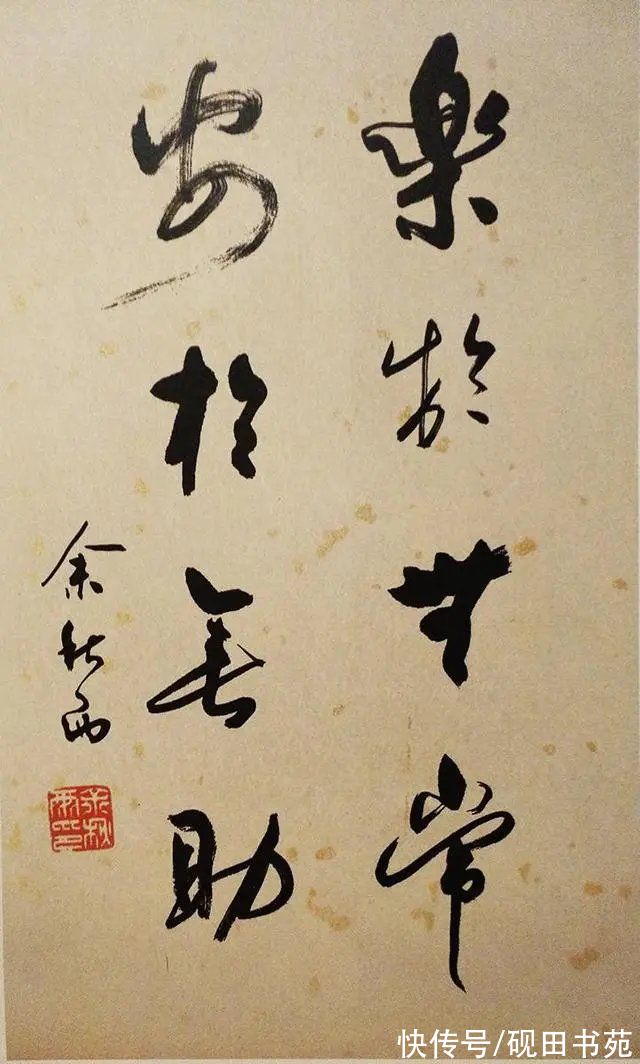 樂於無常
安於無助
余秋雨
余秋雨印
快传号/砚田书苑